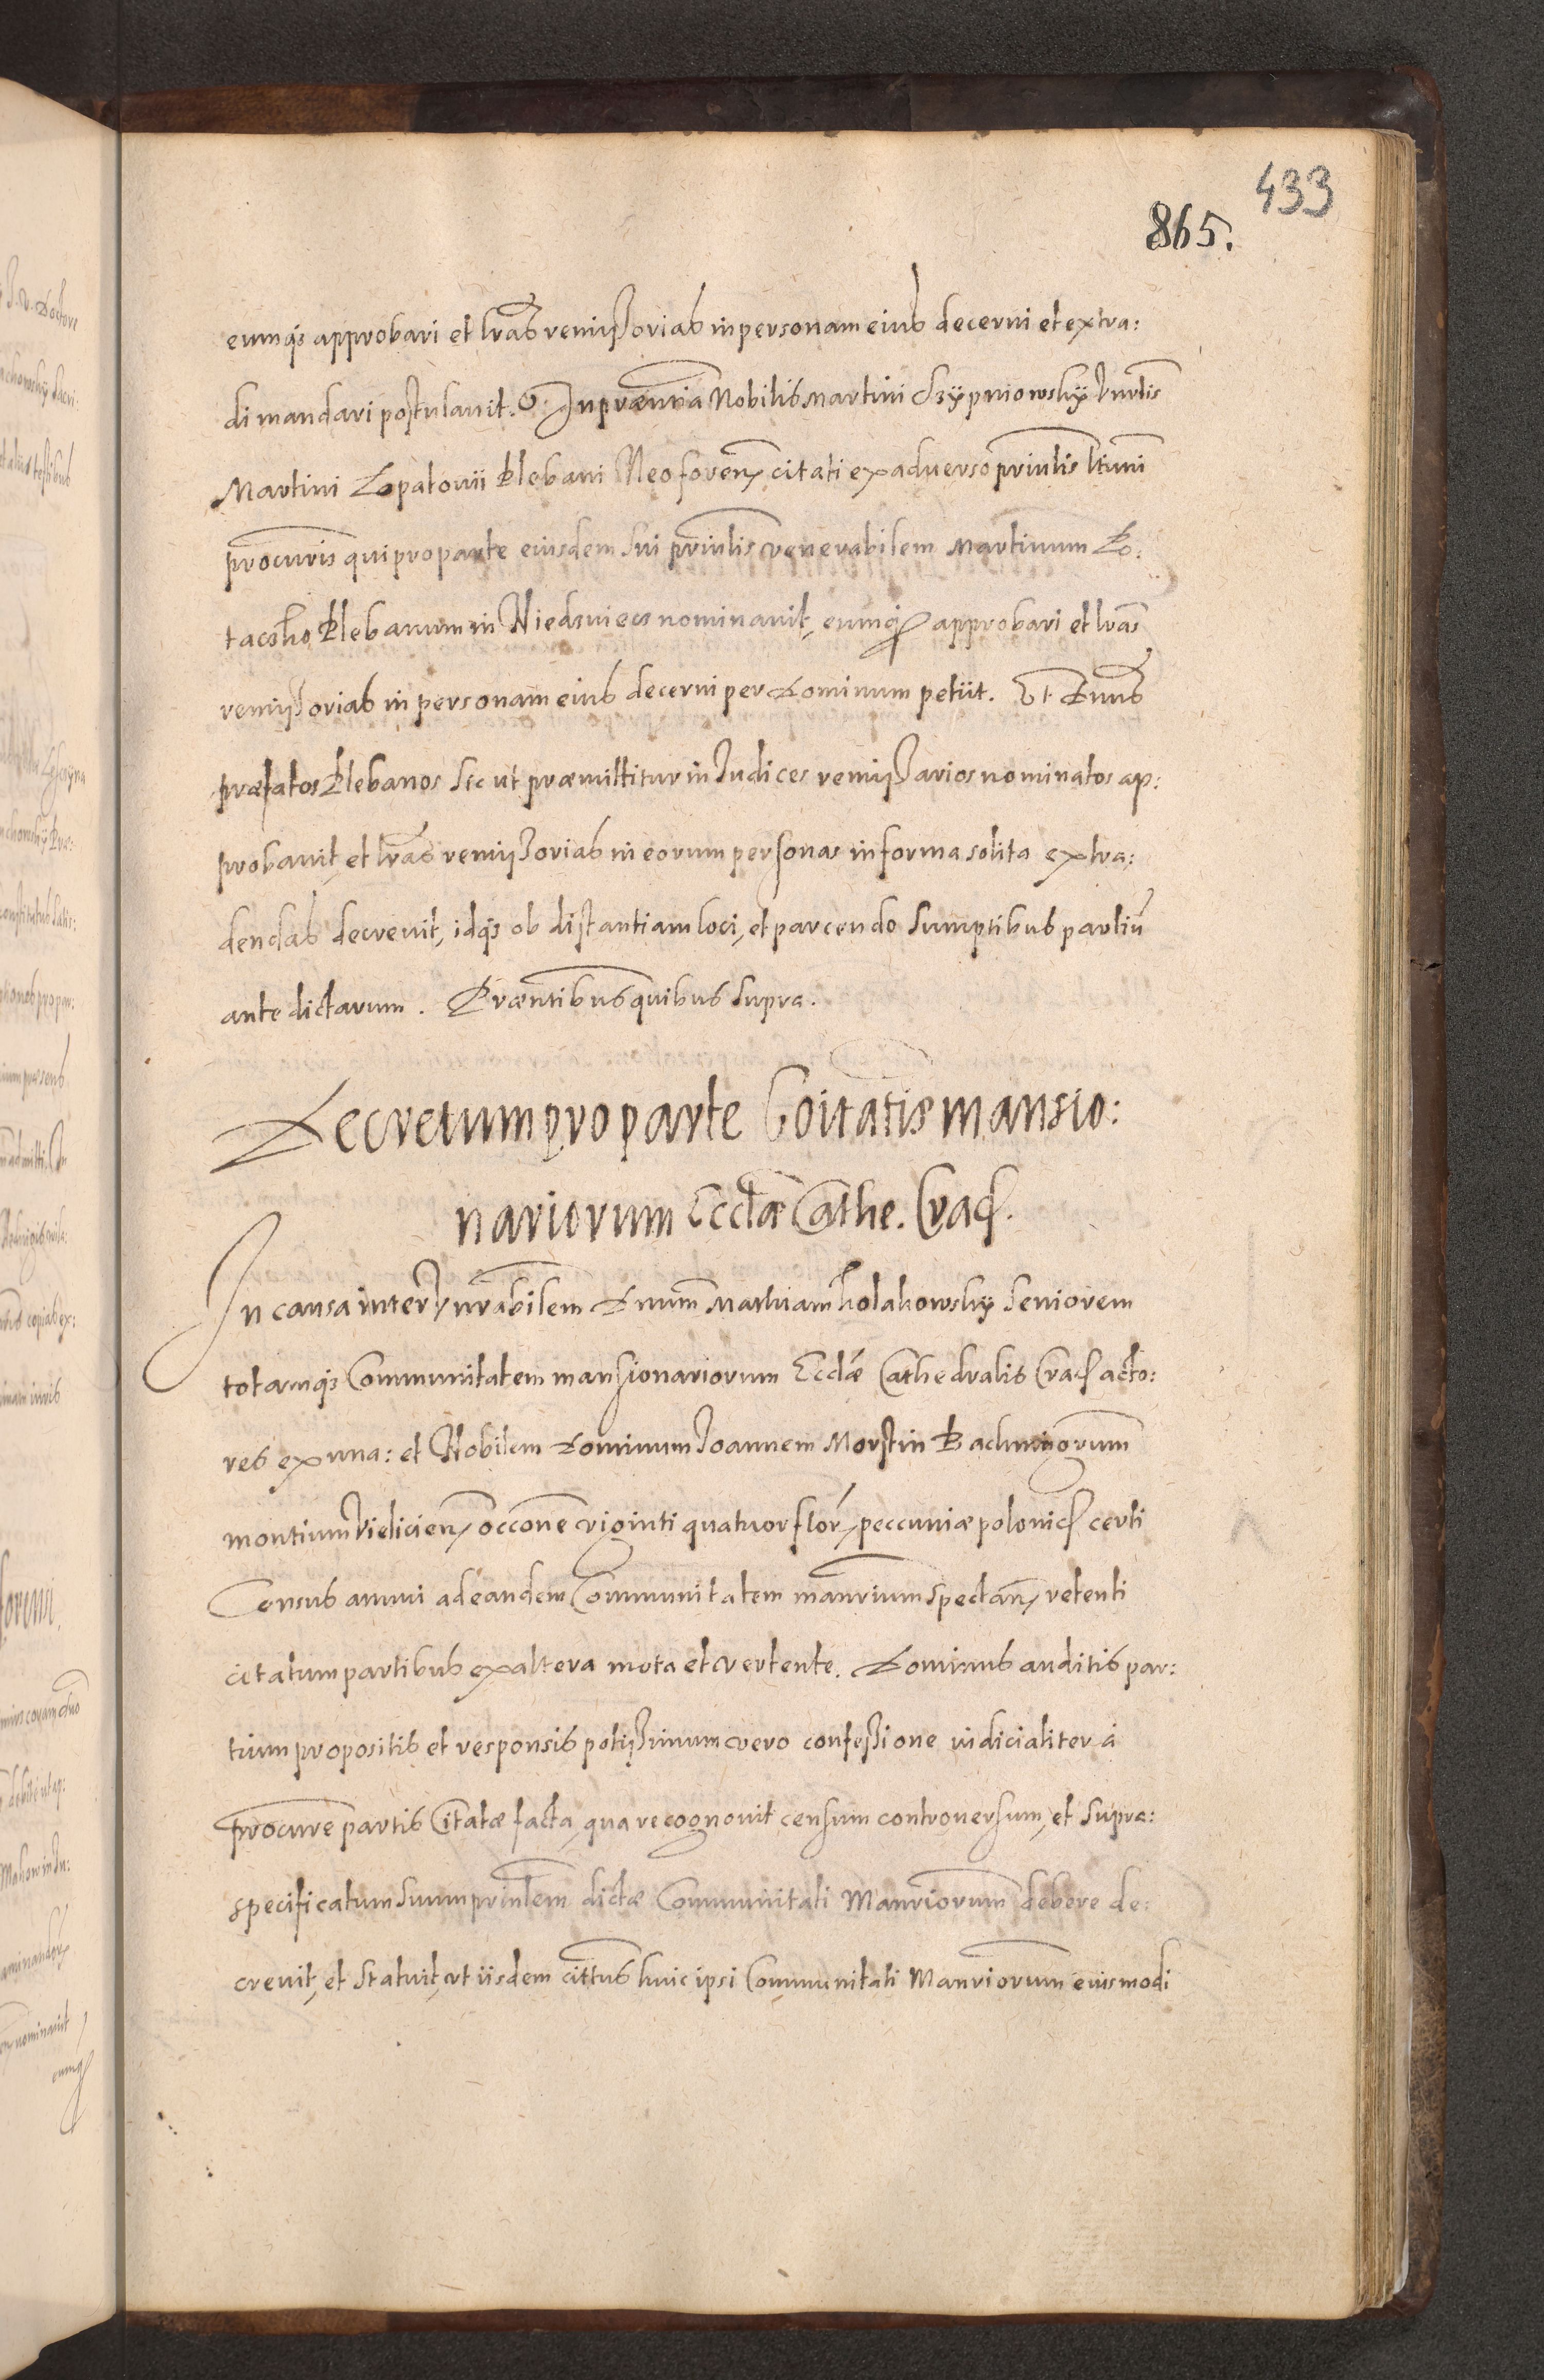 433
865.
eumqs approbari et lras remissorias in personam eius decerni et extra:
di mandari postulavit. In præntia Nobilis Martini Skypniowsky
Martini Lopatovii Plebani Neoforen citati ex adverso prinlis ltimi
procuris qui pro parte eiusdem sui prinlis venerabilem Martinum Po:
tacsko Plebanum in Niedzwiecz nominavit, eumq approbari et lras
remissorias in personam eius decerni per Dominum petiit. Et Dnus
præfatos Plebanos sic ut præmittitur in Iudices remissarios nominatos ap:
probavit, et lras remissorias in eorum personas in forma solita extra:
dendas decrevit, idqs ob distantiam loci, et parcendo sumptibus partiu
ante dictarum. Præntibus quibus supra.
Decretum pro parte Coitatis mansio:
nariorum Eccliæ Cathe. Crac.
In causa inter Vnrabilem Dnum Mathiam Kolakowsky Seniorem
totamqs Communitatem mansionariorum Eccliæ Cathedralis Crac acto:
res ex una: et Nobilem Dominum Ioannem Morstin Bachmigorum
montium Vielicien occone viginti quatuor flor peccuniæ polonic certi
Census annui ad eandem Communitatem manrium spectan retenti
citatum partibus ex altera mota et vertente. Dominus auditis par:
tium propositis et responsis potissimum vero confessione iudicialiter à
procure partis Citatæ facta, qua recognovit censum controversum, et supra:
specificatum suum prinlem dictæ Communitati Manriorum debere de:
crevit, et statuit, ut iisdem cittus huic ipsi Communitati Manriorum eiusmodi